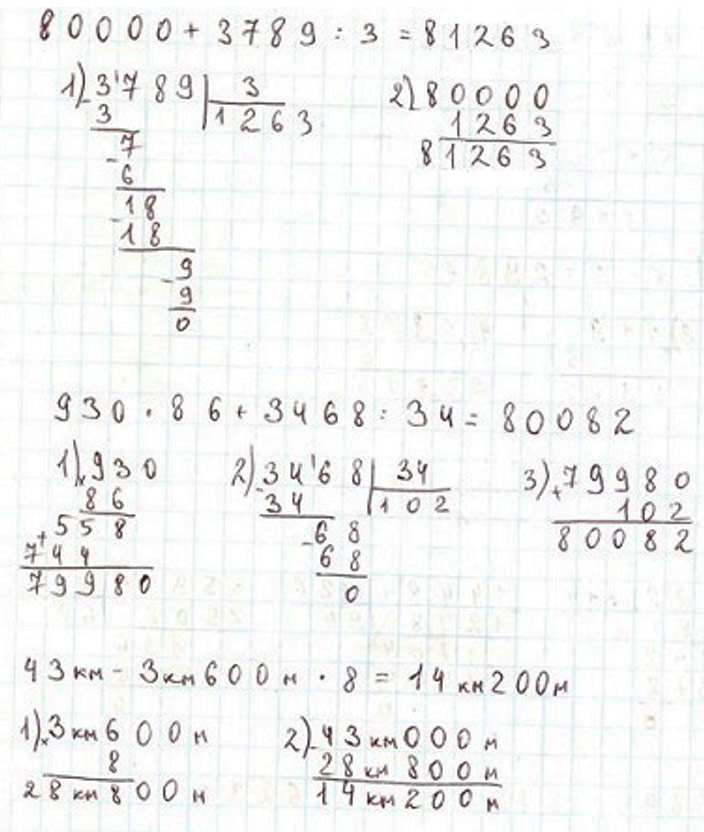 80000 + 3789 : 3 = 81263
1) 3'789 | 3
2) 80000
3
1263
1263
7
81263
6
18
18
9
9
0
930 · 86 + 3468 : 34 = 80082
1) × 930
2) 34'68 | 34
3) + 79980
86
34
102
102
+ 558
68
80082
744
68
79980
0
43 км - 3 км 600 м · 8 = 14 км 200 м
1) × 3 км 600 м
2) - 43 км 000 м
8
28 км 800 м
28 км 800 м
14 км 200 м